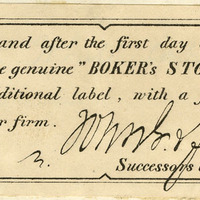 and after the first day
e genuine "BOKER's STO
ditional label, with a f
r firm.
Successors